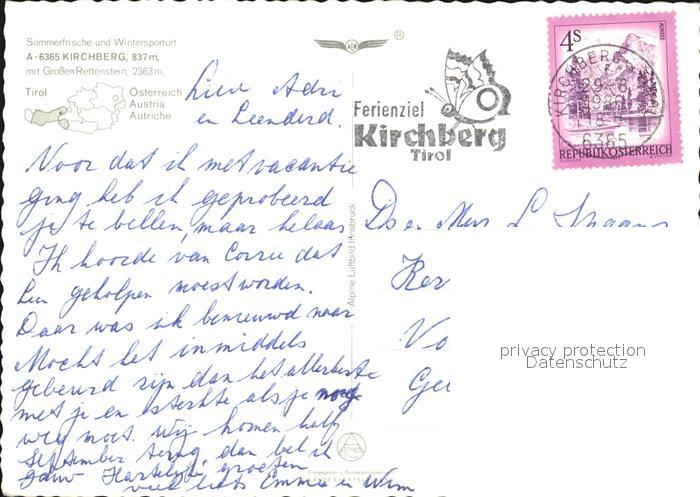 Sommerfrische und Wintersportort
A-6365 KIRCHBERG, 837 m,
mit Großen Rettenstein, 2363 m.
Tirol
Österreich
Austria
Autriche
Lieve Adri
en Leenderd.
Voor dat ik met vacantie
ging heb ik geprobeerd
je te bellen, maar helaas
Ik hoorde van Corrie dat
Leen geholpen moest worden.
Daar was ik benieuwd naar
Mocht het inmiddels
gebeurd zijn dan het allerbeste
met je en sterkte als je nog
weg moet. Wij komen half
september terug, dan bel ik
gauw Hartelijk groeten
veel liefs Emmie en Wim
®
Ferienziel
Kirchberg
Tirol
4 S
ALMSEE
KIRCHBERG
6365
REPUBLIK ÖSTERREICH
Alpine Luftbild Innsbruck
Ds en Mevr L
Ker
Vo
Ge
privacy protection
Datenschutz
ALPINE